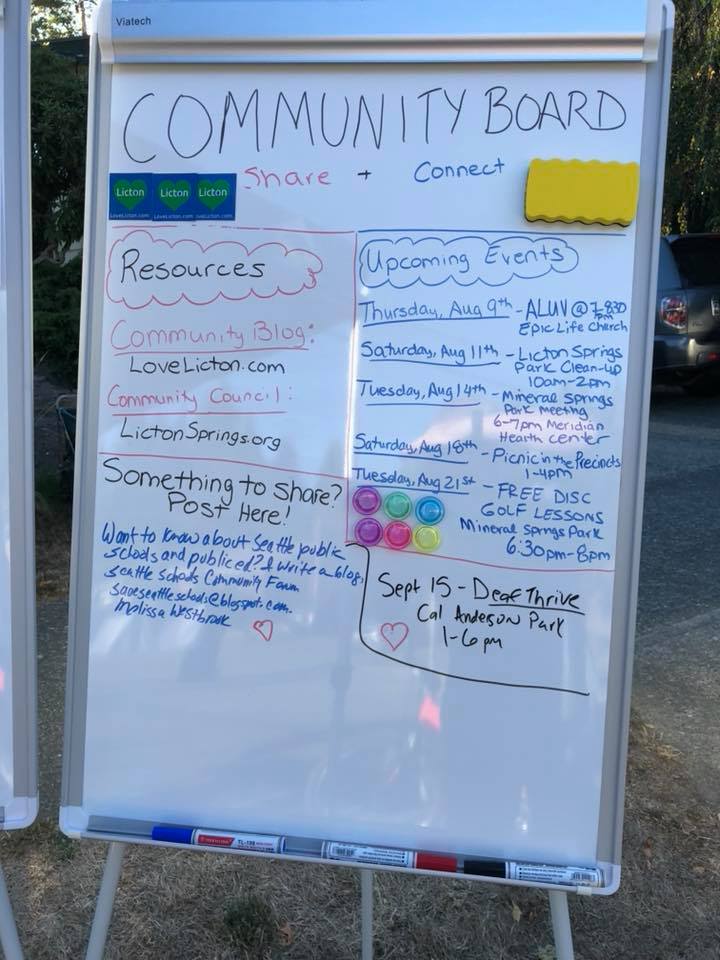 Viatech
COMMUNITY BOARD
Share + Connect
Licton Licton Licton
LoveLicton.com LoveLicton.com LoveLicton.com
Resources
Community Blog:
LoveLicton.com
Community Council:
LictonSprings.org
Something to share?
Post Here!
Want to know about Seattle public
schools and public ed? I write a blog,
seattle schools Community Forum
saveseattleschools@blogspot.com.
Melissa Westbrook
Upcoming Events
Thursday, Aug 9th - ALUV @ 7-8:30 PM
Epic Life Church
Saturday, Aug 11th - Licton Springs
Park Clean-up
10am-2pm
Tuesday, Aug 14th - Mineral Springs
Park Meeting
6-7pm Meridian
Health center
Saturday, Aug 18th - Picnic in the Precincts
1-4pm
Tuesday, Aug 21st - FREE DISC
GOLF LESSONS
Mineral Springs Park
6:30pm-8pm
Sept 15 - Deaf Thrive
Cal Anderson Park
1-6pm